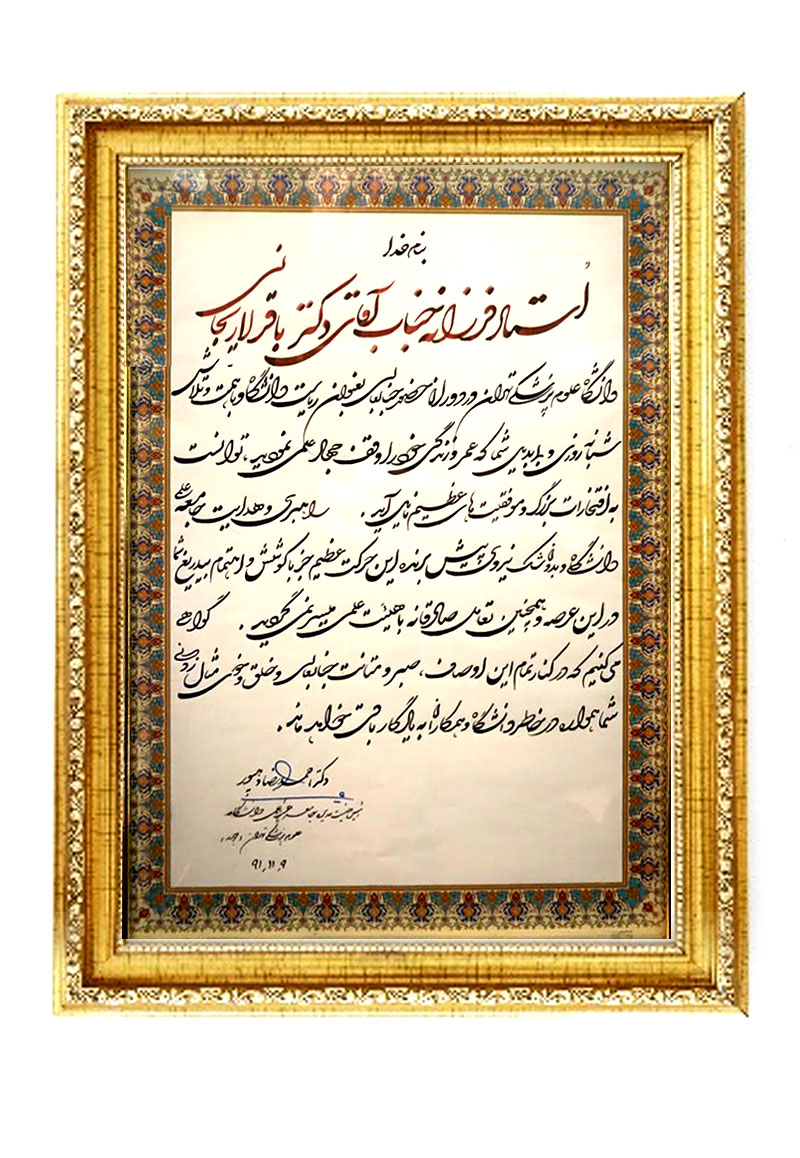 بنام خدا
اُستاد فرزانه جناب آقای دکتر باقر لاریجانی
دانشگاه علوم پزشکی تهران در دوران حضور جنابعالی بعنوان ریاست دانشگاه و با همت و تلاش
شبانه روزی و بی بدیل شما که عمر و زندگی خود را وقف جهاد علمی نمودید، توانست
به افتخارات بزرگ و موفقیت های عظیم نایل آید. راهبری و هدایت جامعه علمی
دانشگاه و بدون شک نیروی پیش برنده این حرکت عظیم جز با کوشش و اهتمام بیدریغ شما
در این عرصه و همچنین تعامل صادقانه با هیئت علمی میسر نمی گردید. گواهی
می کنیم که در کنار تمام این اوصاف، صبر و متانت جنابعالی و خلق و خوی مثال زدنی
شما همواره در خاطر دانشگاه و همکاران به یادگار باقی خواهد ماند.
دکتر احمدرضا دهپور
رئیس هیئت مدیره جامعه اعضای علمی دانشگاه
علوم پزشکی تهران
۹۱٫۱۱٫۹